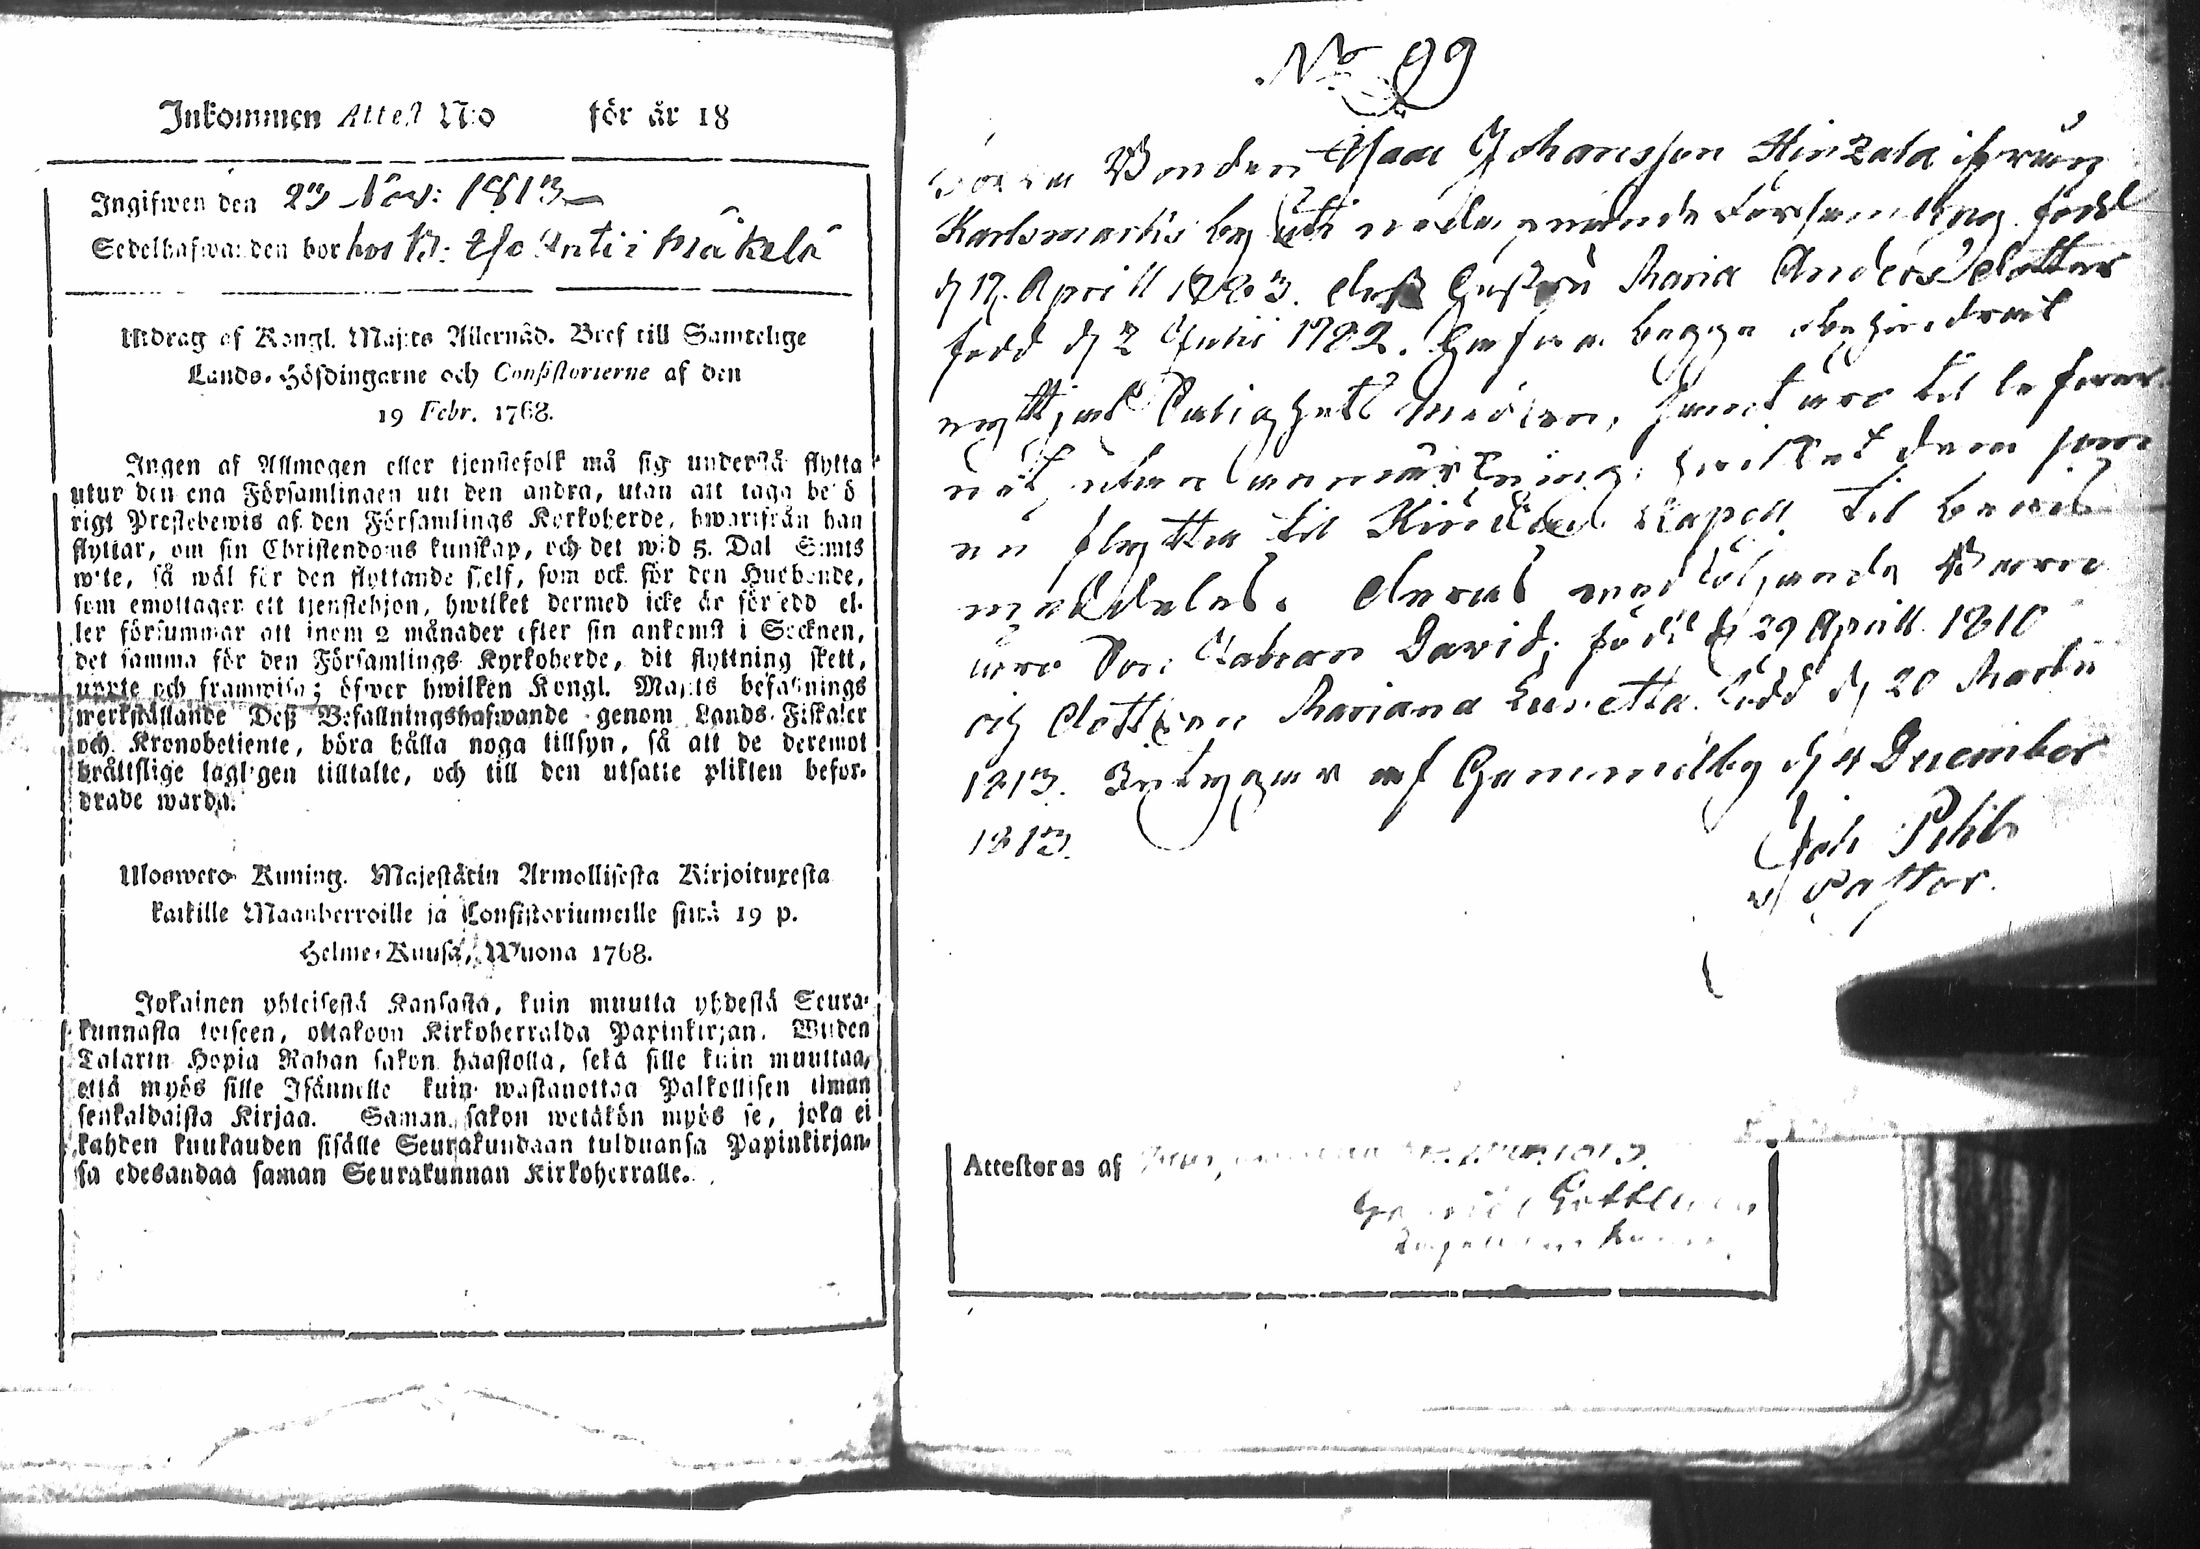 Inkommen Attest N:o för år 18
Ingifwen den 23 Nov: 1813
Sedelhafwanden bor hos
Utdrag af Kongl. Maj:ts Allernåd. Bref till Samtelige
Lands-Höfdingarne och Consistorierne af den
19 Febr. 1768.
Ingen af Allmogen eller tjenstefolk må sig understå flytta
utur den ena Församlingen uti den andra, utan att taga behö
rigt Prestebewis af den Församlings Kyrkoherde, hwarifrån han
flyttar, om sin Christendoms kunskap, och det wid 5. Dal S:mts
wite, så wäl för den flyttande sjelf, som ock för den Husbonde,
som emottager ett tjenstehjon, hwilket dermed icke är försedd el-
ler försummar att inom 2 månader efter sin ankomst i Socknen,
det samma för den Församlings Kyrkoherde, dit flyttning skett,
uppte och framwisa; öfwer hwilken Kongl. Maj:ts befallnings
werkställande Deß Befallningshafwande genom Lands-Fiskaler
och Kronobetjente, böra hålla noga tillsyn, så att de deremot
bråttslige lagligen tilltalte, och till den utsatte plikten befor-
drade warda.
Ulosweto Kuning. Majestätin Armollisesta Kirjoituxesta
kaikille Maanherroille ja Consistoriumeille siitä 19 p.
Helme-Kuusa, Wuona 1768.
Jokainen yhteisestä Kansasta, kuin muutta yhdestä Seura-
kunnasta toiseen, ottakoon Kirkoherralda Papinkirjan. Wiiden
Talarin Hopia Rahan sakon haastolla, sekä sille kuin muuttaa,
että myös sille Isännelle kuin wastanottaa Palkollisen ilman
senkaldaista Kirjaa. Saman sakon wetäkön myös se, joka ei
kahden kuukauden sisälle Seurakundaan tulduansa Papinkirjan-
sa edesandaa saman Seurakunnan Kirkoherralle.
No 99
Bonden Isaac Johansson ifrån
Karlsmarks by uti Församling född
d 17. Aprill 1783. deß Hustru Maria Andersdotter
född d 2 Julii 1782. Hafwa begge obehindrat
nyttjat Salighets medlen, samt äro til lefwer
net utan anmärkning. hwilket dem som
nu flytta til Kapell til bewis
meddelas. deras medföljande Barn
äro Son Johan David, född d 29 Aprill 1810
och dottren Mariana Lovetta född d 20 Martii
1813. Betygar af Gammelby d 4 December
1813.
Joh Pihl
v Pastor.
Attesteras af